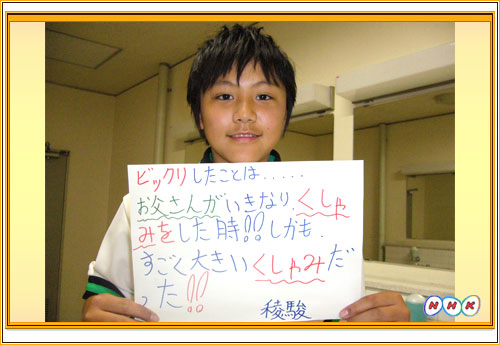 ビックリしたことは.....
お父さんがいきなり、くしゃ
みをした時!!しかも、
すごく大きいくしゃみだ
った!!
稜駿
NHK